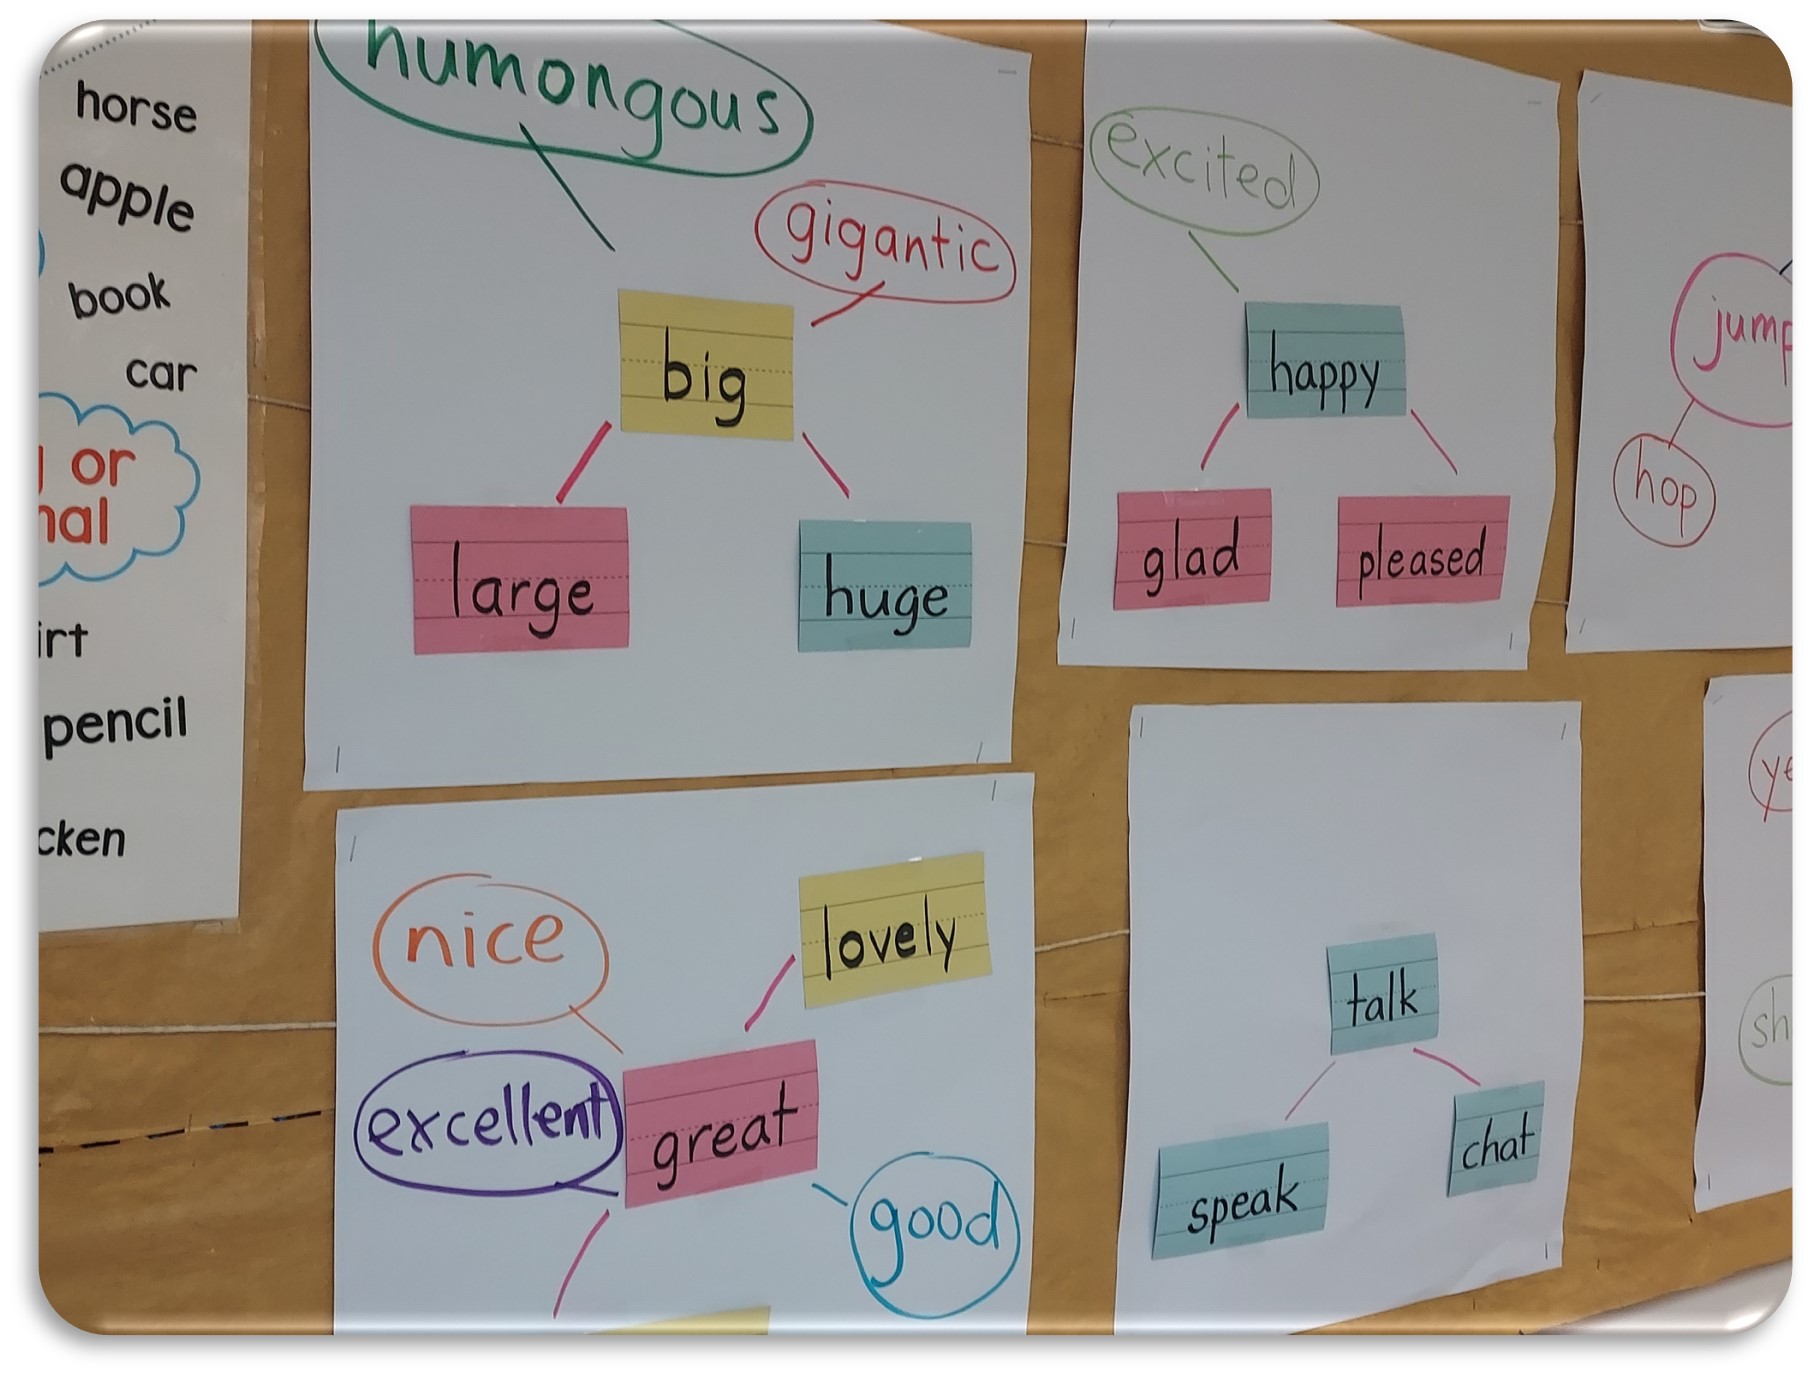 horse
apple
book
car
or
irt
pencil
cken
humongous
gigantic
big
large
huge
excited
happy
glad
pleased
jump
hop
nice
lovely
excellent
great
good
talk
speak
chat
ye
sh